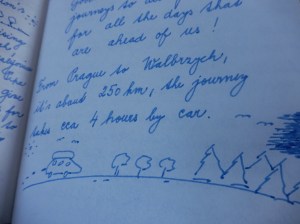 journeys to all
for all the days that
are ahead of us!
From Prague to Walbrzych,
it's about 250 km, the journey
take cca 4 hours by car.